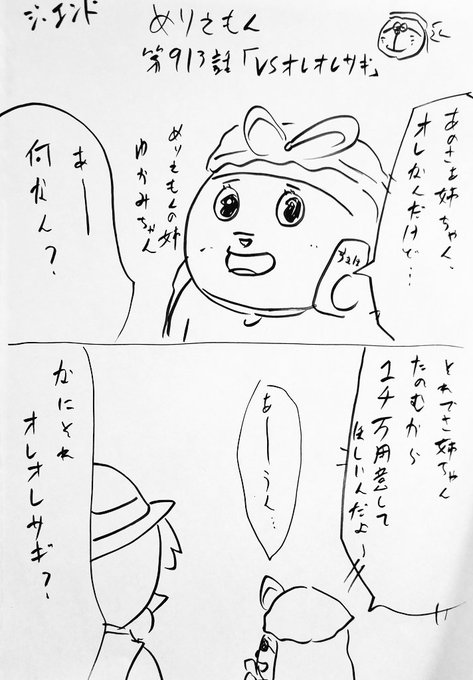 ジ・エンド
めりえもん
第913話「VSオレオレサギ」
あのさぁ姉ちゃん、
オレなんだけど…
めりえもんの姉
ゆかみちゃん
あー
何なん？
それでさ姉ちゃん
たのむから
1千万用意して
ほしいんだよー
あーうん…
なにそれ
オレオレサギ？